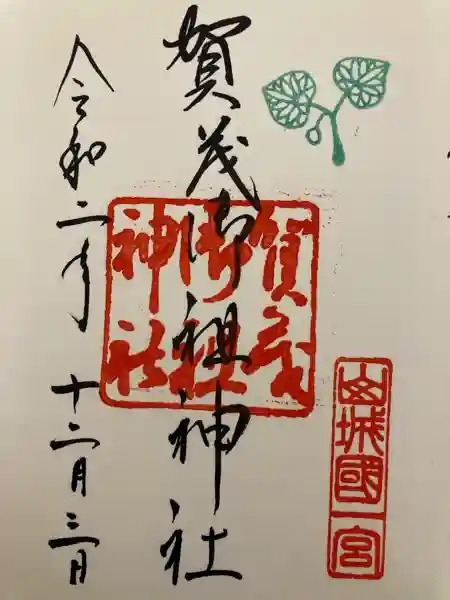 山城國一宮
賀茂御祖神社
賀茂
御祖
神社
令和二年 十二月三日